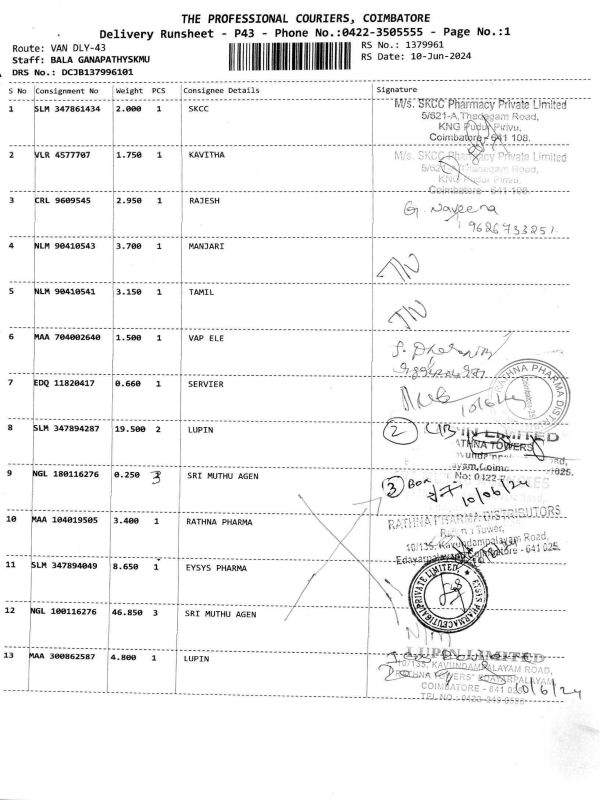 THE PROFESSIONAL COURIERS, COIMBATORE
Delivery Runsheet - P43 - Phone No.:0422-3505555 - Page No.:1
Route: VAN DLY-43
RS No.: 1379961
Staff: BALA GANAPATHYSKMU
RS Date: 10-Jun-2024
DRS No.: DCJB137996101
S No Consignment No Weight PCS Consignee Details Signature
1 SLM 347861434 2.000 1 SKCC
M/s. SKCC Pharmacy Private Limited
5/621-A, Thadagam Road,
KNG Pudur Pirivu,
Coimbatore - 641 108.
2 VLR 4577707 1.750 1 KAVITHA
M/s. SKCC Pharmacy Private Limited
Thadagam Road,
KNG Pudur Pirivu,
Coimbatore - 641 108.
3 CRL 9609545 2.950 1 RAJESH
G. Nayeena
9626733251
4 NLM 90410543 3.700 1 MANJARI
5 NLM 90410541 3.150 1 TAMIL
6 MAA 704002640 1.500 1 VAP ELE
7 EDQ 11820417 0.660 1 SERVIER
10/6/24
RATHNA PHARMA DISTRI
8 SLM 347894287 19.500 2 LUPIN
2 C/B
LIMITED
RATHNA TOWERS
9 NGL 180116276 0.250 3 SRI MUTHU AGEN
3 Box
10/06/24
10 MAA 104019505 3.400 1 RATHNA PHARMA
RATHNA PHARMA DISTRIBUTORS
Tower,
10/135, Kavundampalayam Road,
Edayarpalayam, Coimbatore - 641 025.
11 SLM 347894049 8.650 1 EYSYS PHARMA
EYSYS PHARMACEUTICAL PRIVATE LIMITED
12 NGL 100116276 46.850 3 SRI MUTHU AGEN
13 MAA 300862587 4.800 1 LUPIN
LUPIN LIMITED
10/135, KAVUNDAMPALAYAM ROAD,
RATHNA TOWERS" EDAYARPALAYAM
COIMBATORE - 641 025
10/6/24